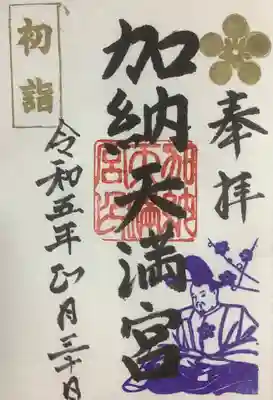 奉拝
加納天満宮
加納天満宮印
初詣
令和五年正月三十日